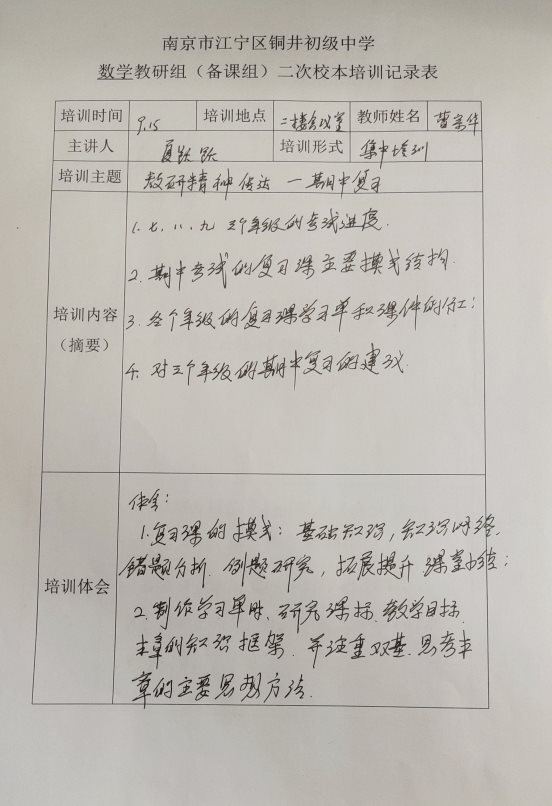 南京市江宁区铜井初级中学
数学教研组（备课组）二次校本培训记录表
培训时间 9.15 培训地点 二楼会议室 教师姓名 曹宗华
主讲人 夏跃跃 培训形式 集中培训
培训主题 教研精神传达 — 期中复习
培训内容（摘要）
1. 七、八、九 三个年级的考试进度.
2. 期中考试的复习课主要模式结构.
3. 各个年级的复习课学习单和课件的分工;
4. 对三个年级的期中复习的建议.
培训体会
体会:
1. 复习课的模式: 基础知识, 知识网络,
错题分析. 例题研究, 拓展提升. 课堂小结;
2. 制作学习单时、研究课标. 教学目标.
本章的知识框架. 并注重双基. 思考本
章的主要思想方法.